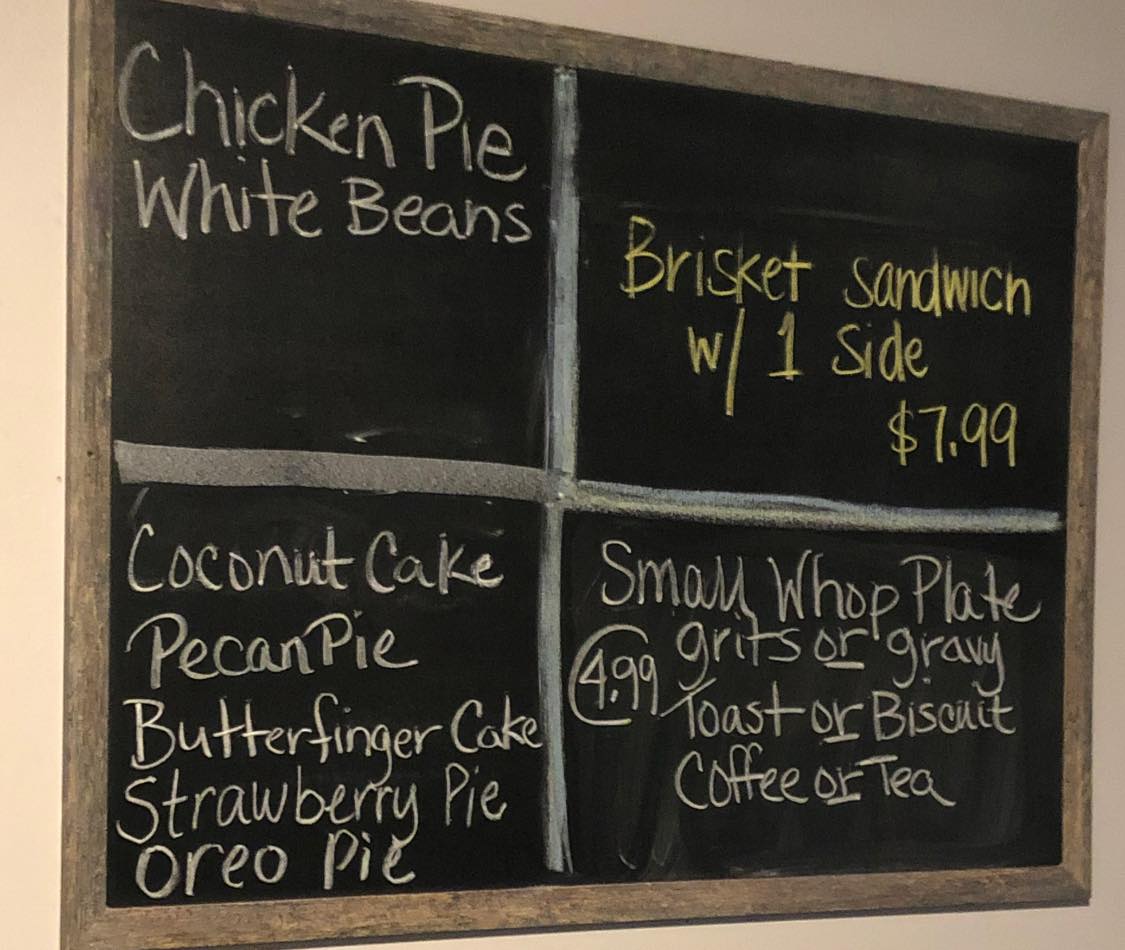 Chicken Pie
White Beans
Brisket sandwich
w/ 1 side
$7.99
Coconut Cake
Pecan Pie
Butterfinger Cake
Strawberry Pie
Oreo Pie
Small Whop Plate
grits or gravy
4.99
Toast or Biscuit
Coffee or Tea